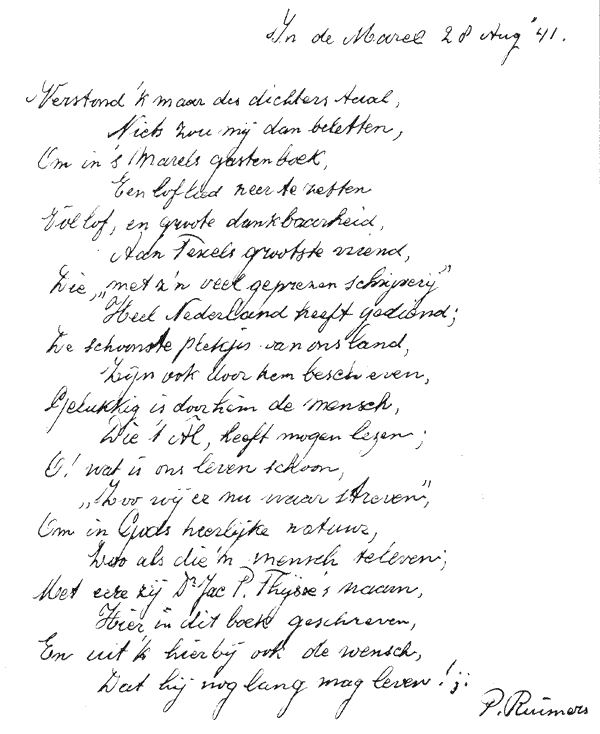 In de Marel 28 Aug '41.
Verstond 'k maar des dichters taal,
Niets zou mij dan beletten,
Om in 's Marels gastenboek,
Een loflied neer te zetten
Vol lof, en groote dankbaarheid,
Aan Texels grootste vriend,
Die, "met z'n veel geprezen schrijverij"
Heel Nederland heeft gediend;
De schoonste plekjes van ons land,
Zijn ook door hem beschreven,
Gelukkig is door hem de mensch,
Die 't Al, heeft mogen lezen;
O! wat is ons leven schoon,
"Zoo wij er nu naar streven",
Om in Gods heerlijke natuur,
Zoo als die 'n mensch te leven;
Met eere zij Dr Jac P. Thijsse's naam,
Hier in dit boek geschreven,
En uit 'k hierbij ook de wensch,
Dat hij nog lang mag leven!;.
P. Ruimers